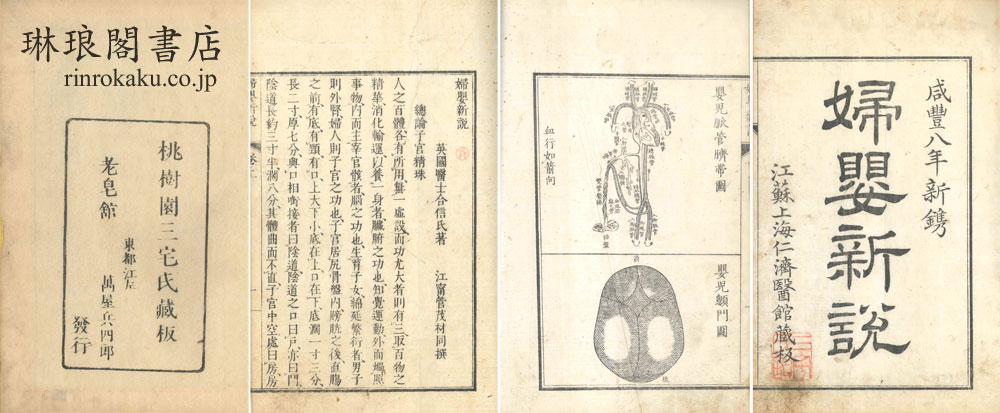 琳琅閣書店
rinrokaku.co.jp
桃樹園三宅氏藏板
東都江左
老皂館
萬屋兵四郎
發行
婦嬰新說
英國醫士合信氏著
江寧管茂材同撰
總論子宮精珠
人之百體各有所用無一虛設而功尤大者則有三取百物之
精華消化輸運以養一身者臟腑之功也知覺運動外而遍照
事物內而主宰官骸者腦之功也生育子女綿延繁衍者男子
則外腎婦人則子宮之功也子宮居尻骨盤內膀胱之後直腸
之前有底有頸有口上大下小底在上口在下底濶一寸三分
長二寸厚七分與口相啣接者曰陰道陰道之口曰戶亦曰門
陰道長約三寸半濶八分其體曲而不直子宮中空處曰房房
嬰兒脈管臍帶圖
血行如箭向
嬰兒顖門圖
咸豐八年新鐫
婦嬰新說
江蘇上海仁濟醫館藏板